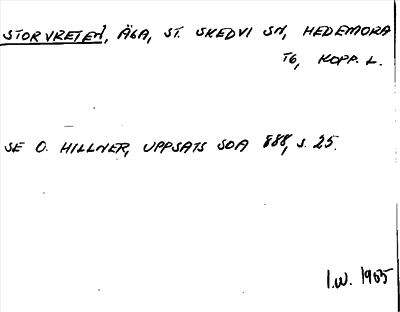 STORVRETEN, ÄGA, ST. SKEDVI SN, HEDEMORA
TG, KOPP. L.
SE O. HILLNER, UPPSATS SOA 888, S. 25.
I.W. 1965